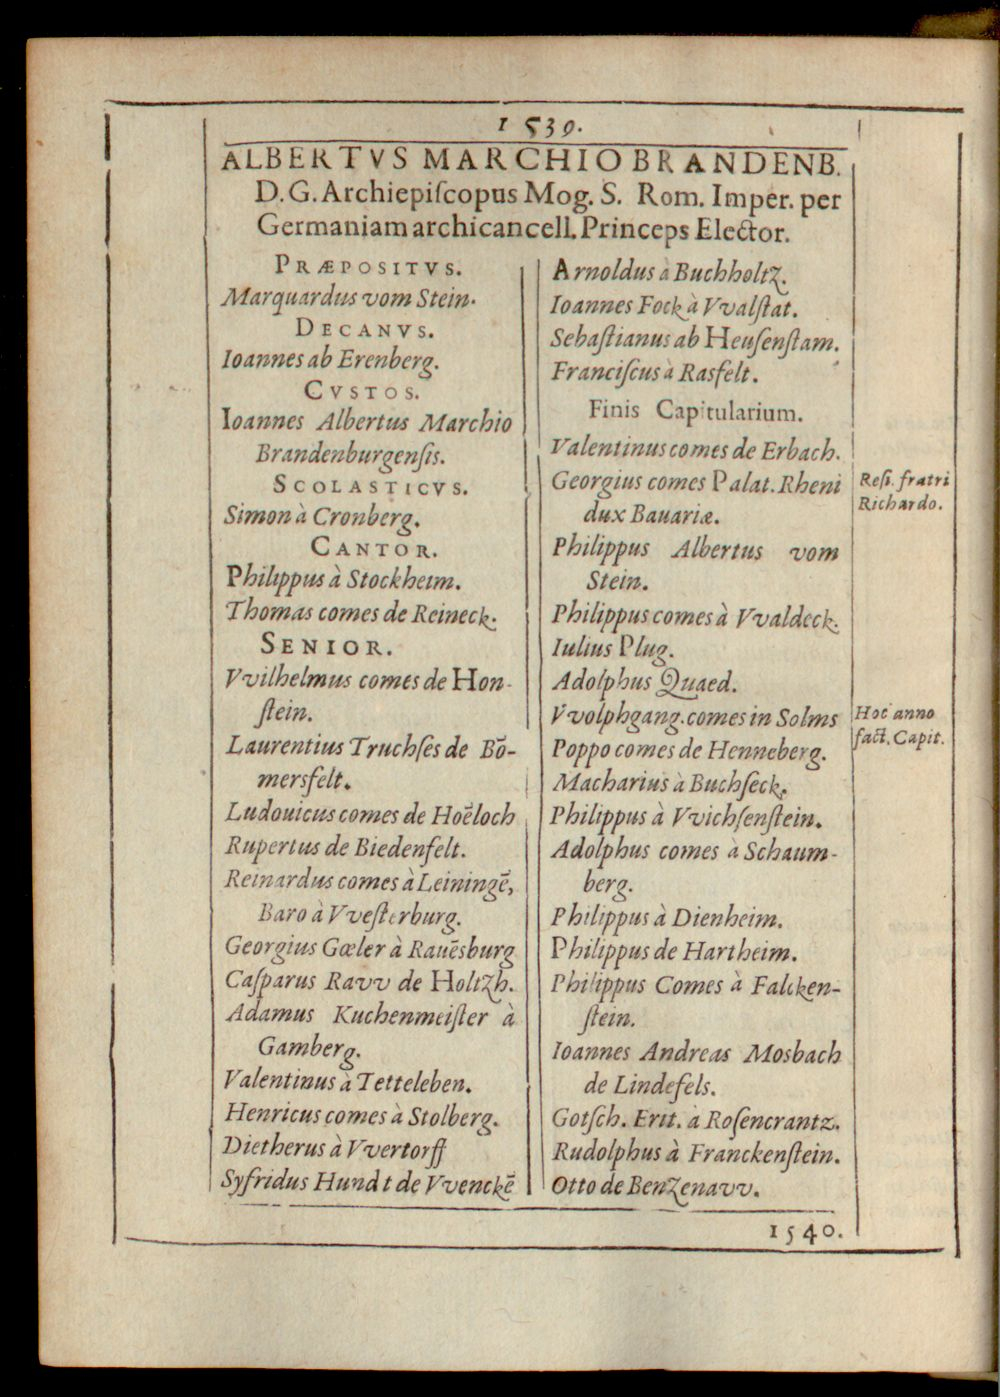 1539.
ALBERTVS MARCHIO BRANDENB.
D. G. Archiepiſcopus Mog. S. Rom. Imper. per
Germaniam archicancell. Princeps Elector.
PRÆPOSITVS.
Marquardus vom Stein.
DECANVS.
Ioannes ab Erenberg.
CVSTOS.
Ioannes Albertus Marchio
Brandenburgenſis.
SCOLASTICVS.
Simon à Cronberg.
CANTOR.
Philippus à Stockheim.
Thomas comes de Reineck.
SENIOR.
Vvilhelmus comes de Hon-
ſtein.
Laurentius Truchſes de Bō-
mersfelt.
Ludouicus comes de Hoēloch
Rupertus de Biedenfelt.
Reinardus comes à Leiningē,
Baro à Vveſterburg.
Georgius Gœler à Rauēsburg
Caſparus Ravv de Holtzh.
Adamus Kuchenmeiſter à
Gamberg.
Valentinus à Tetteleben.
Henricus comes à Stolberg.
Dietherus à Vvertorff
Syfridus Hundt de Vvenckē
Arnoldus à Buchholtz.
Ioannes Fock à Vvalſtat.
Sebaſtianus ab Heuſenſtam.
Franciſcus à Rasfelt.
Finis Capitularium.
Valentinus comes de Erbach.
Georgius comes Palat. Rheni
dux Bauariæ.
Philippus Albertus vom
Stein.
Philippus comes à Vvaldeck.
Iulius Plug.
Adolphus Quaed.
Vvolphgang. comes in Solms
Poppo comes de Henneberg.
Macharius à Buchſeck.
Philippus à Vvichſenſtein.
Adolphus comes à Schaum-
berg.
Philippus à Dienheim.
Philippus de Hartheim.
Philippus Comes à Falcken-
ſtein.
Ioannes Andreas Mosbach
de Lindefels.
Gotſch. Erit. à Roſencrantz.
Rudolphus à Franckenſtein.
Otto de Benzenavv.
Reſi. fratri
Richardo.
Hoc anno
fact. Capit.
1540.